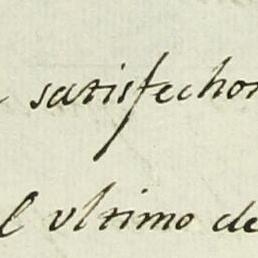 satisfechor
l ultimo de